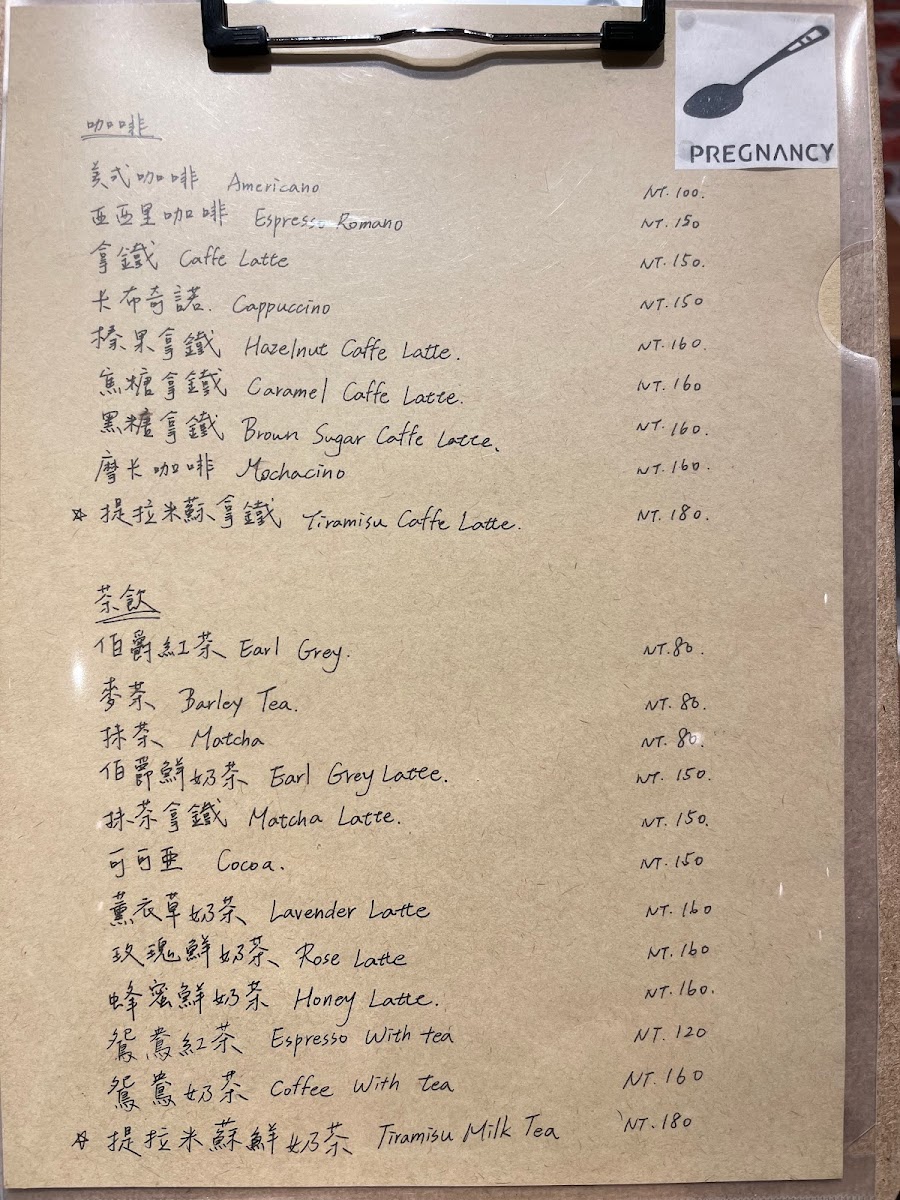 PREGNANCY
咖啡
美式咖啡 Americano NT.100.
西西里咖啡 Espresso Romano NT.150
拿鐵 Caffe Latte NT.150.
卡布奇諾. Cappuccino NT.150
榛果拿鐵 Hazelnut Caffe Latte. NT.160.
焦糖拿鐵 Caramel Caffe Latte. NT.160
黑糖拿鐵 Brown Sugar Caffe Latte. NT.160.
摩卡咖啡 Mochacino NT.160.
☆ 提拉米蘇拿鐵 Tiramisu Caffe Latte. NT.180.
茶飲
伯爵紅茶 Earl Grey. NT.80.
麥茶 Barley Tea. NT.80.
抹茶 Matcha NT.80.
伯爵鮮奶茶 Earl Grey Latte. NT.150.
抹茶拿鐵 Matcha Latte. NT.150.
可可亞 Cocoa. NT.150
薰衣草奶茶 Lavender Latte NT.160
玫瑰鮮奶茶 Rose Latte NT.160
蜂蜜鮮奶茶 Honey Latte. NT.160.
鴛鴦紅茶 Espresso With tea NT.120
鴛鴦奶茶 Coffee With tea NT.160
☆ 提拉米蘇鮮奶茶 Tiramisu Milk Tea NT.180